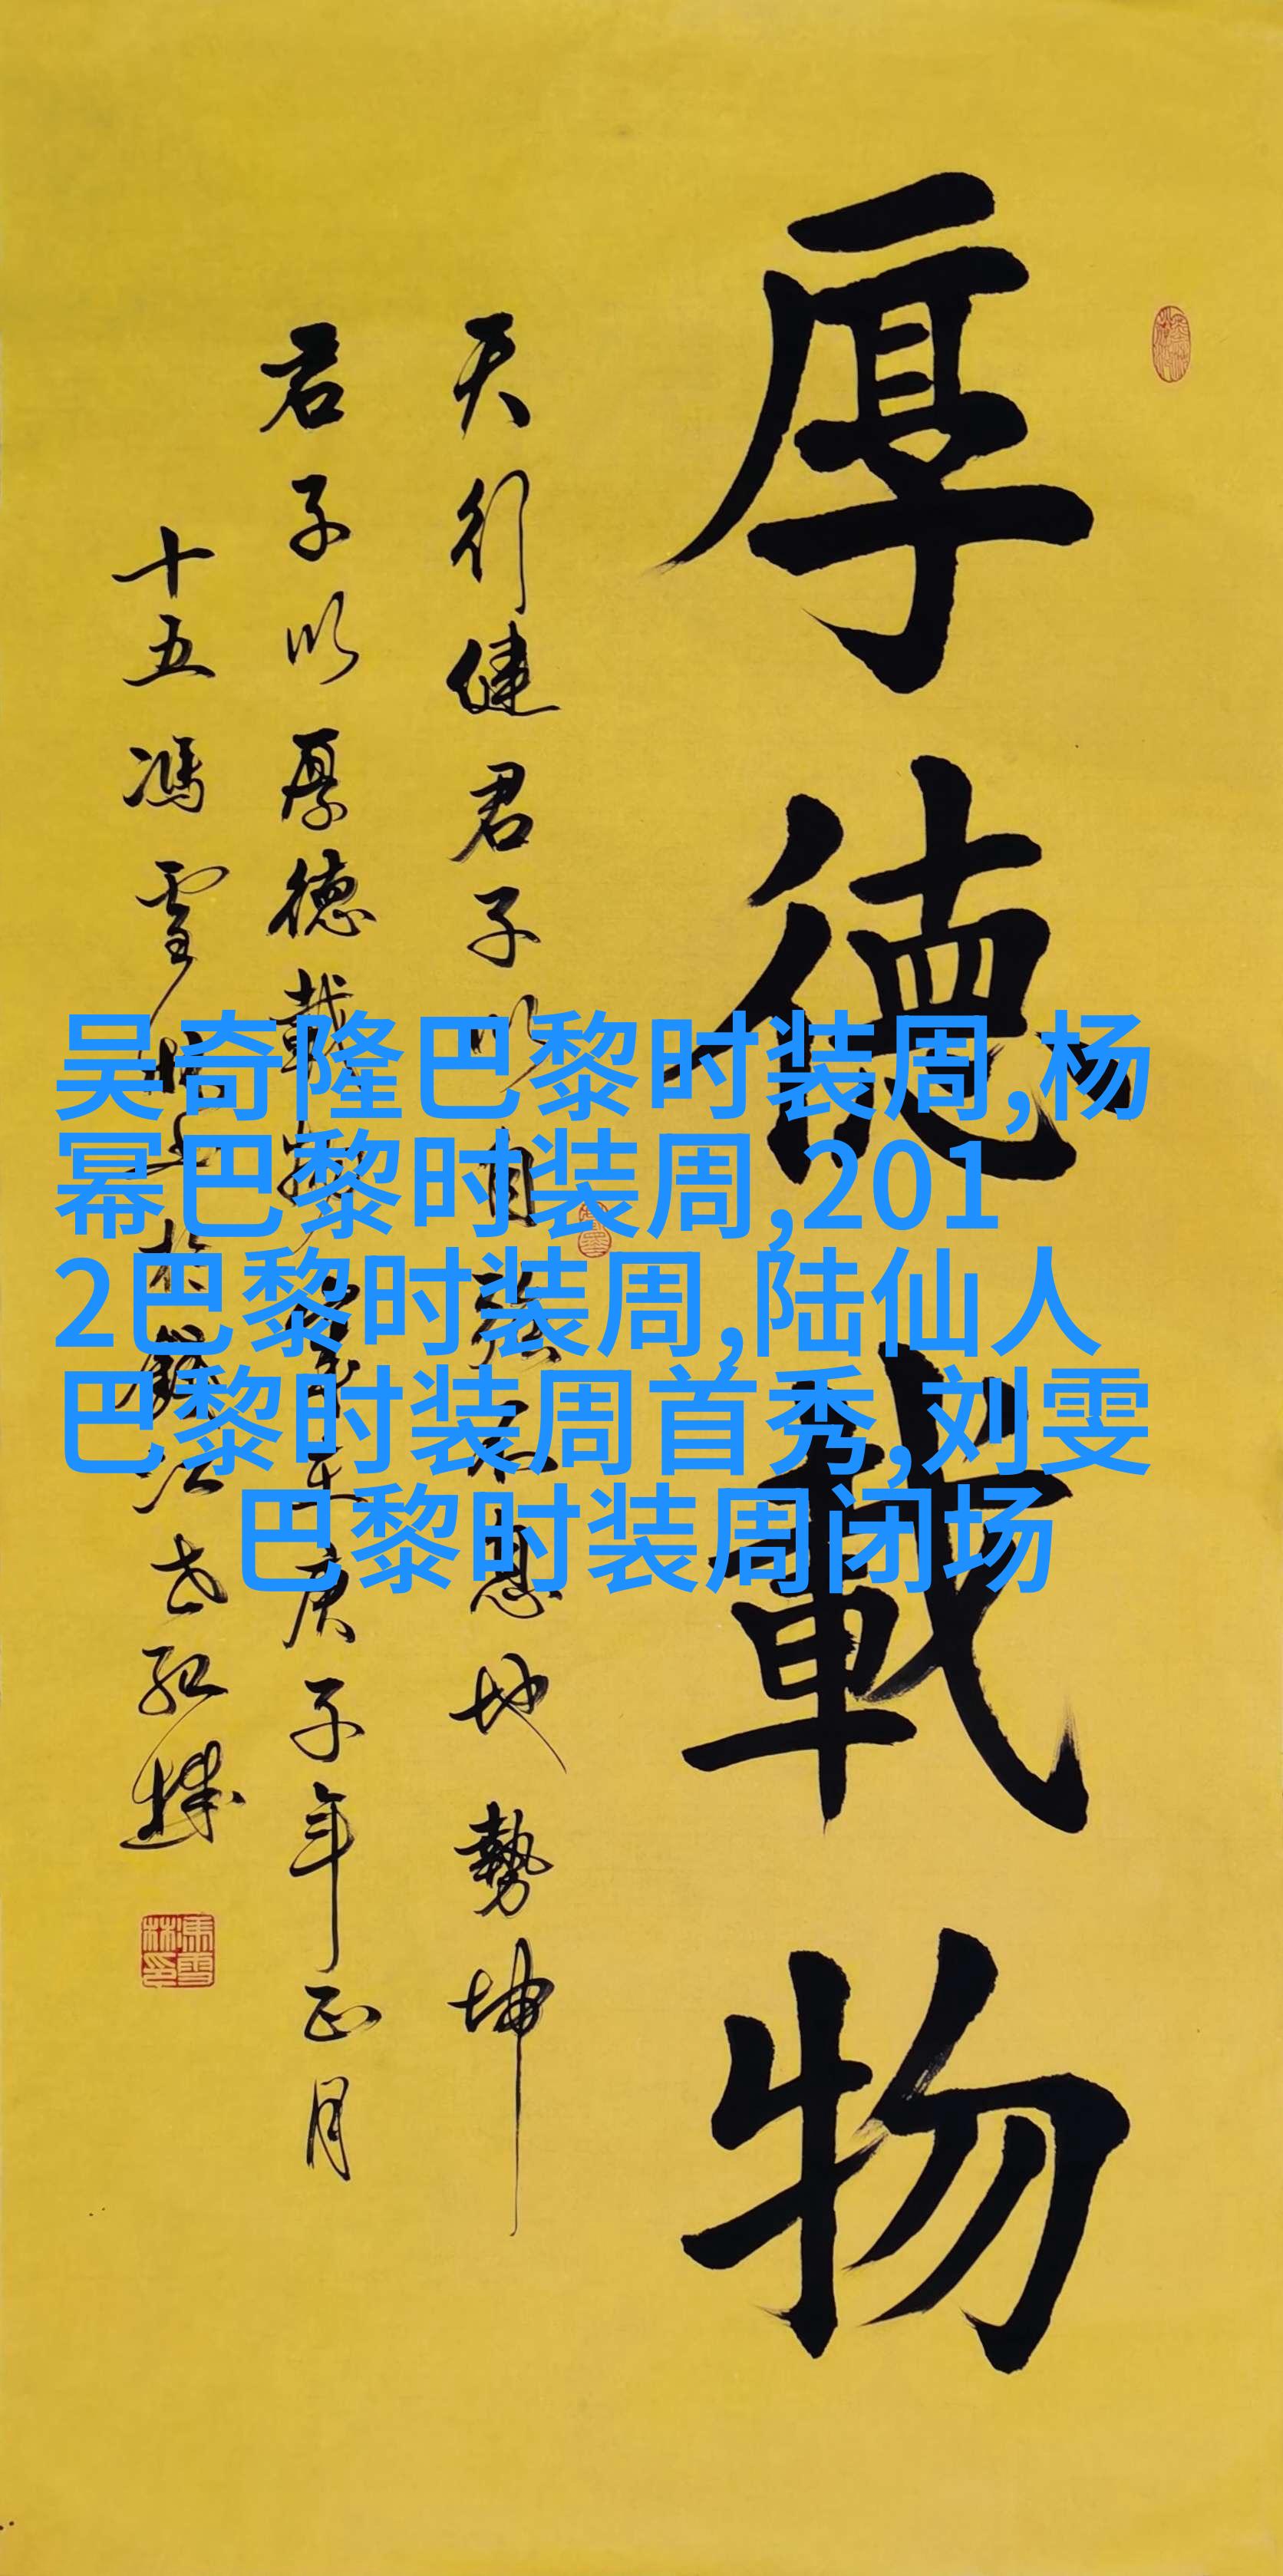 厚德載物
天行健君子以自強不息地勢坤
君子以厚德載物 庚子年正月
十五馮雪林
吴奇隆巴黎时装周,杨
幂巴黎时装周,201
2巴黎时装周,陆仙人
巴黎时装周首秀,刘雯
巴黎时装周闭场